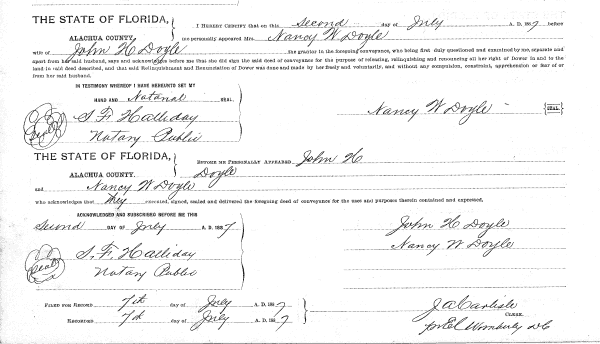 THE STATE OF FLORIDA,
ALACHUA COUNTY.
I HEREBY CERTIFY that on this second day of July A. D. 1887 before
me personally appeared Mrs. Nancy W Doyle
wife of John H Doyle the grantor in the foregoing conveyance, who being first duly questioned and examined by me, separate and
apart from her said husband, says and acknowledges before me that she did sign the said deed of conveyance for the purpose of releasing, relinquishing and renouncing all her right of Dower in and to the
land in said deed described, and that said Relinquishment and Renunciation of Dower was done and made by her freely and voluntarily, and without any compulsion, constraint, apprehension or fear of or
from her said husband.
IN TESTIMONY WHEREOF I HAVE HEREUNTO SET MY
HAND AND Notarial SEAL.
Seal
S. F. Halliday
Notary Public
Nancy W Doyle SEAL
THE STATE OF FLORIDA,
ALACHUA COUNTY.
BEFORE ME PERSONALLY APPEARED John H
Doyle
and Nancy W Doyle
who acknowledges that they executed, signed, sealed and delivered the foregoing deed of conveyance for the uses and purposes therein contained and expressed.
ACKNOWLEDGED AND SUBSCRIBED BEFORE ME THIS
second DAY OF July A.D. 1887
Seal
S. F. Halliday
Notary Public
John H Doyle
Nancy W Doyle
FILED FOR RECORD 7th day of July A. D. 1887
RECORDED 7th day of July A. D. 1887
J A Carlisle
CLERK.
per El Womberly DC